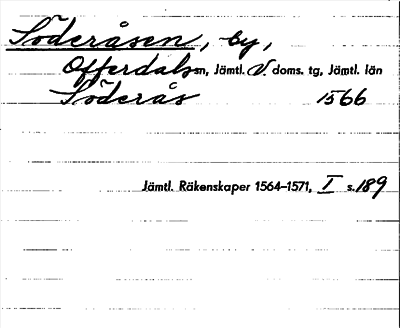 Söderåsen, by,
Offerdals sn, Jämtl. V. doms. tg, Jämtl. län
Söderås 1566
Jämtl. Räkenskaper 1564–1571, I s. 189